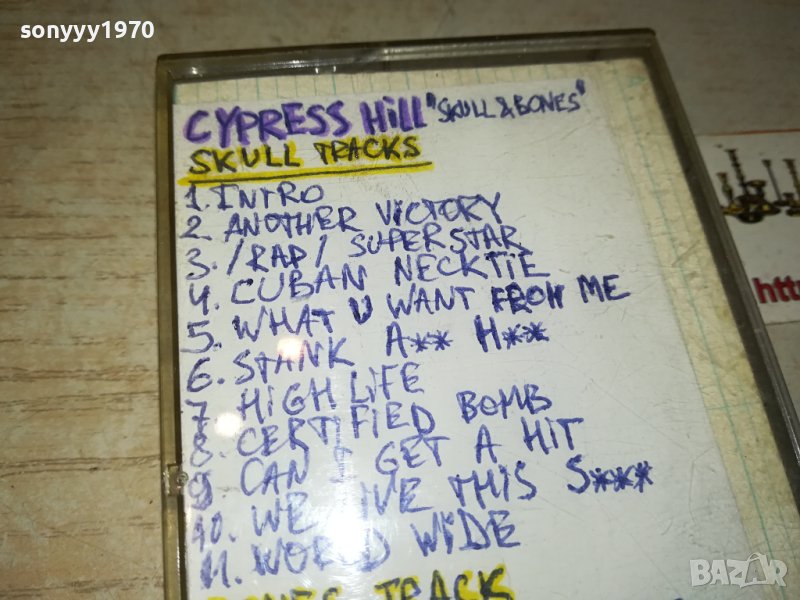 sonyyy1970
CYPRESS HILL "SKULL & BONES"
SKULL TRACKS
1. INTRO
2. ANOTHER VICTORY
3. /RAP/ SUPERSTAR
4. CUBAN NECKTIE
5. WHAT U WANT FROM ME
6. STANK A** H**
7. HIGH LIFE
8. CERTIFIED BOMB
9. CAN I GET A HIT
10. WE LIVE THIS S***
11. WORLD WIDE
BONES TRACK
htt
BAZAR